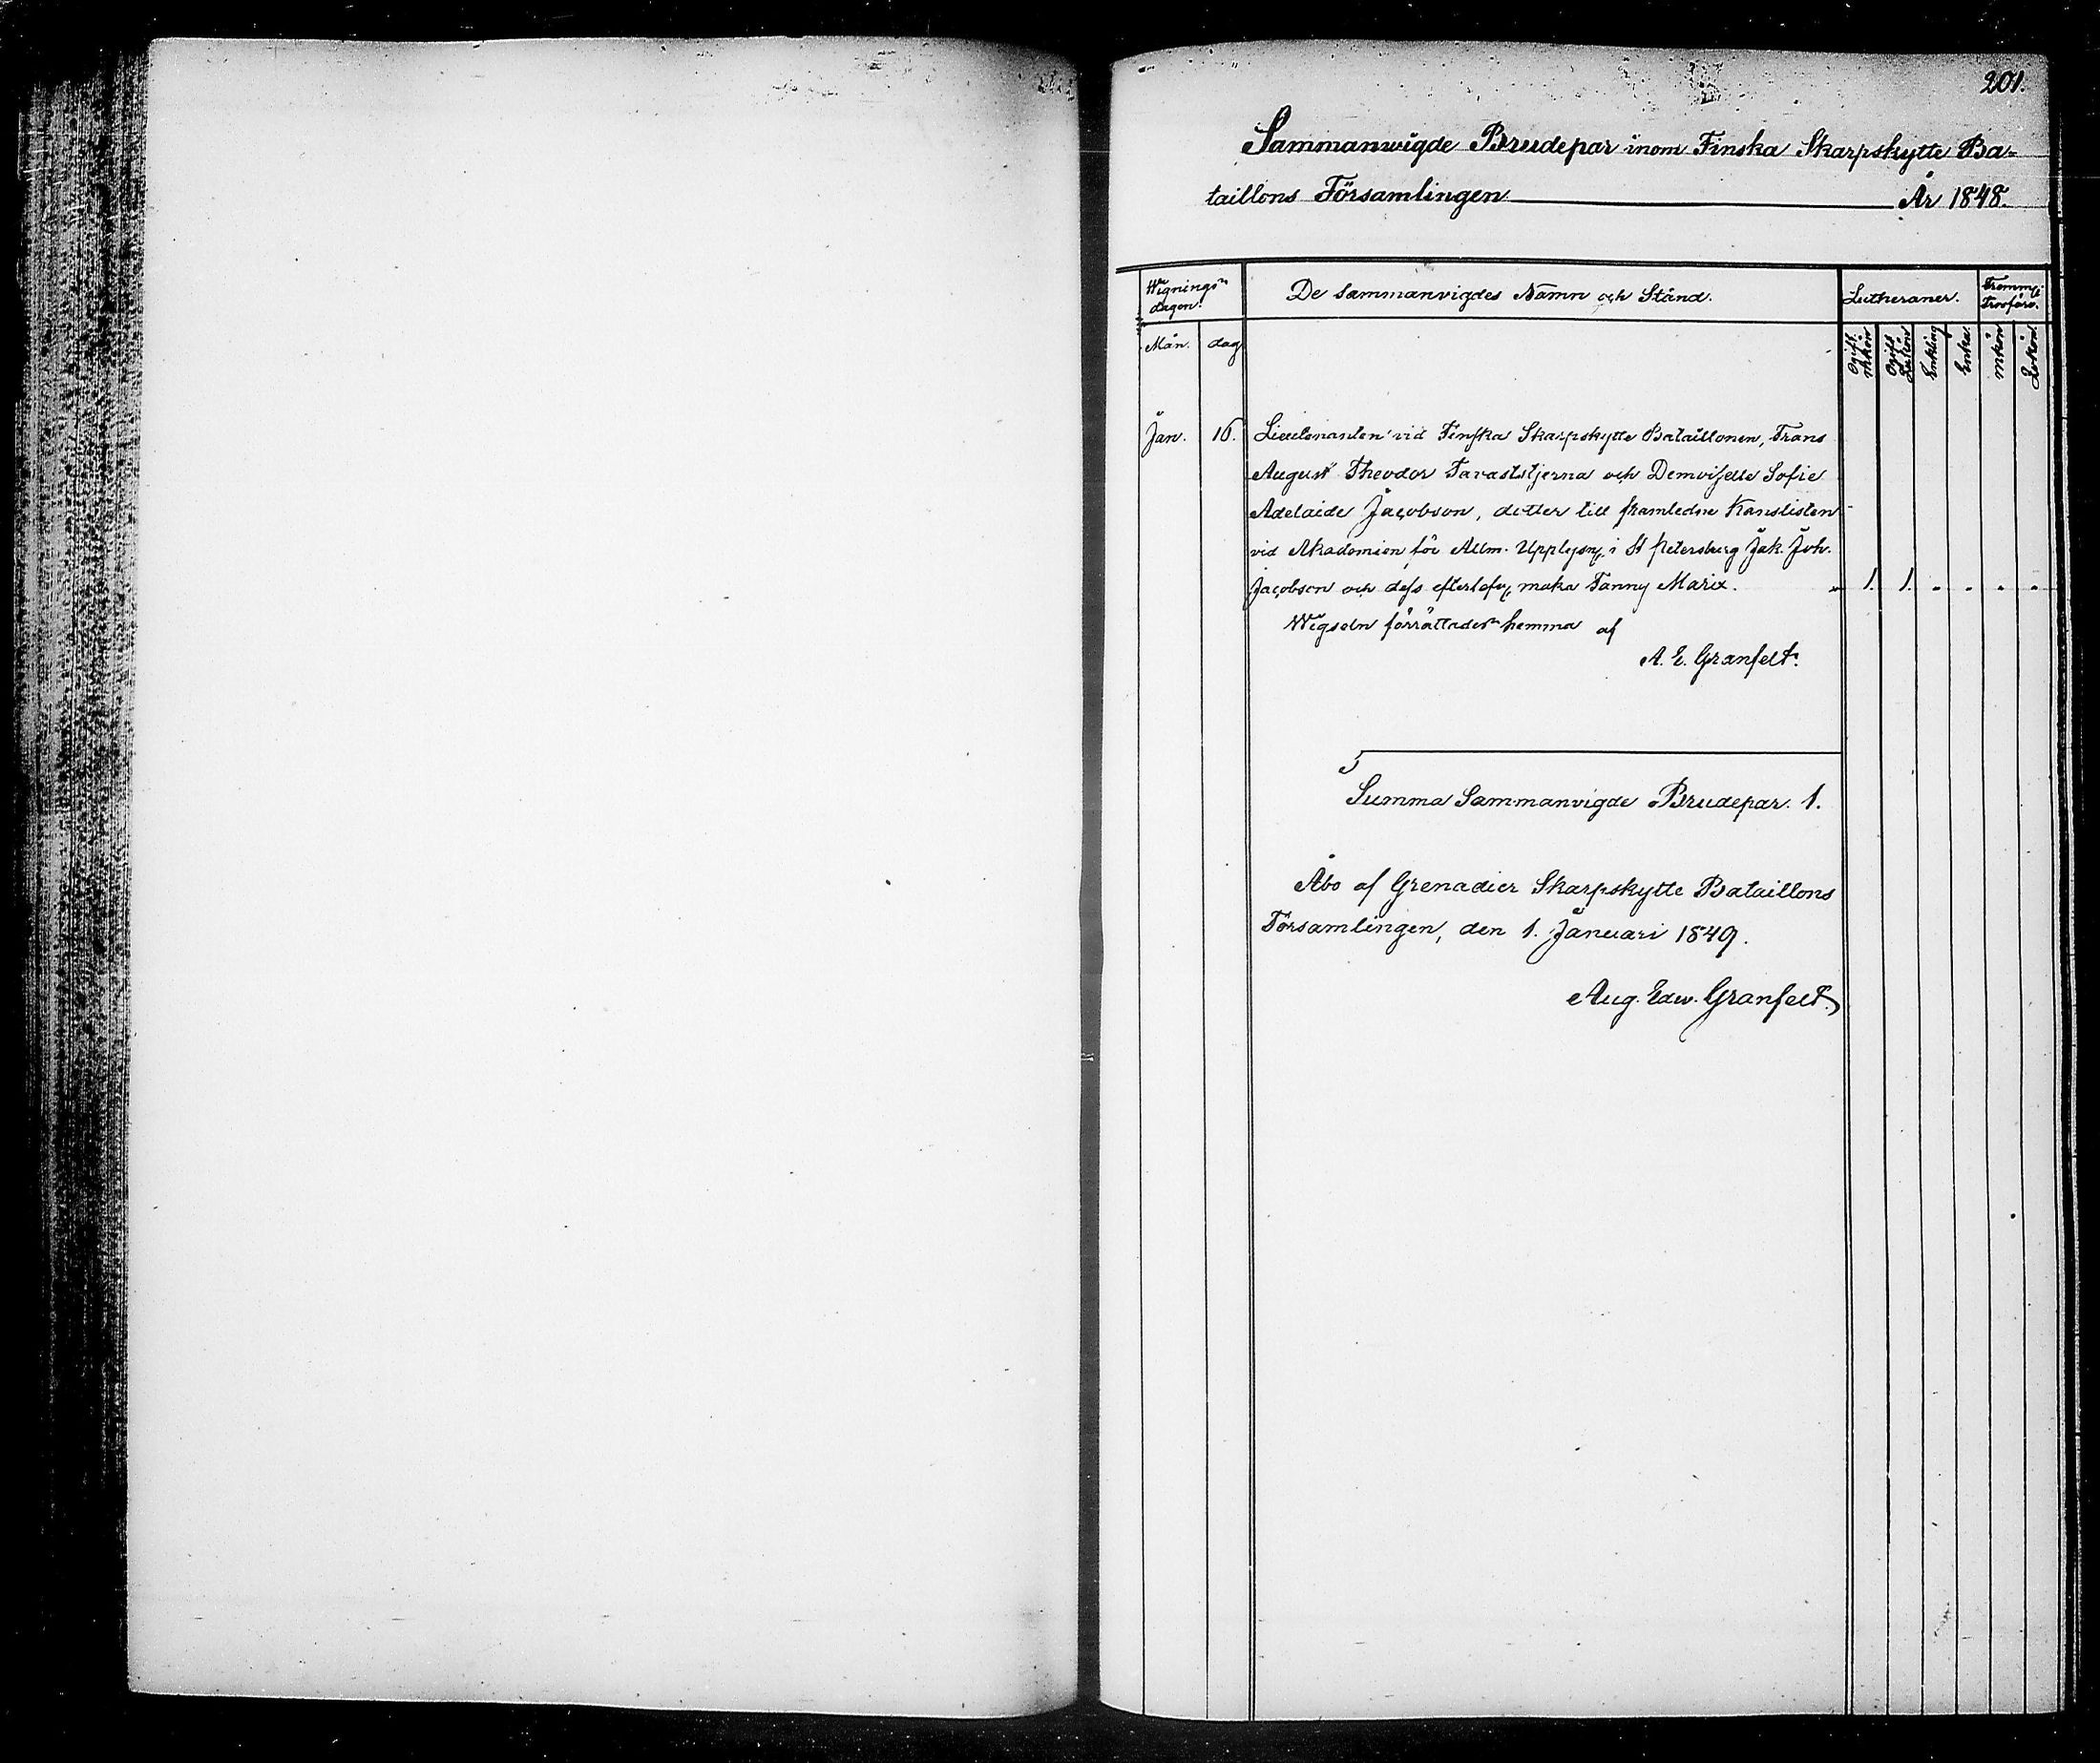 201.
Sammanwigde Brudepar inom Finska Skarpskytte Ba-
taillons Församlingen År 1848.
Wignings-
dagen.
De Sammanvigdes Namn och Stånd.
Lutheraner.
Främm.
Trosförv.
Mån. dag
Ogift Mkön
Ogift Qvkön
Enkling
Enka.
Mkön
Qvkön
Jan. 16. Lieutenanten vid Finska Skarpskytte Bataillonen, Frans
August Theodor Tavaststjerna och Demoiselle Sofie
Adelaide Jacobson, dotter till framledne Kanslisten
vid Akademien för Allm. Upplysn. i St Petersburg Jak. Joh.
Jacobson och dess efterlefv. maka Fanny Marix. 1. 1. - - - -
Wigseln förrättades hemma af
A. E. Granfelt.
Summa Sammanvigde Brudepar. 1.
Åbo af Grenadier Skarpskytte Bataillons
Församlingen, den 1. Januari 1849.
Aug. Edw. Granfelt.